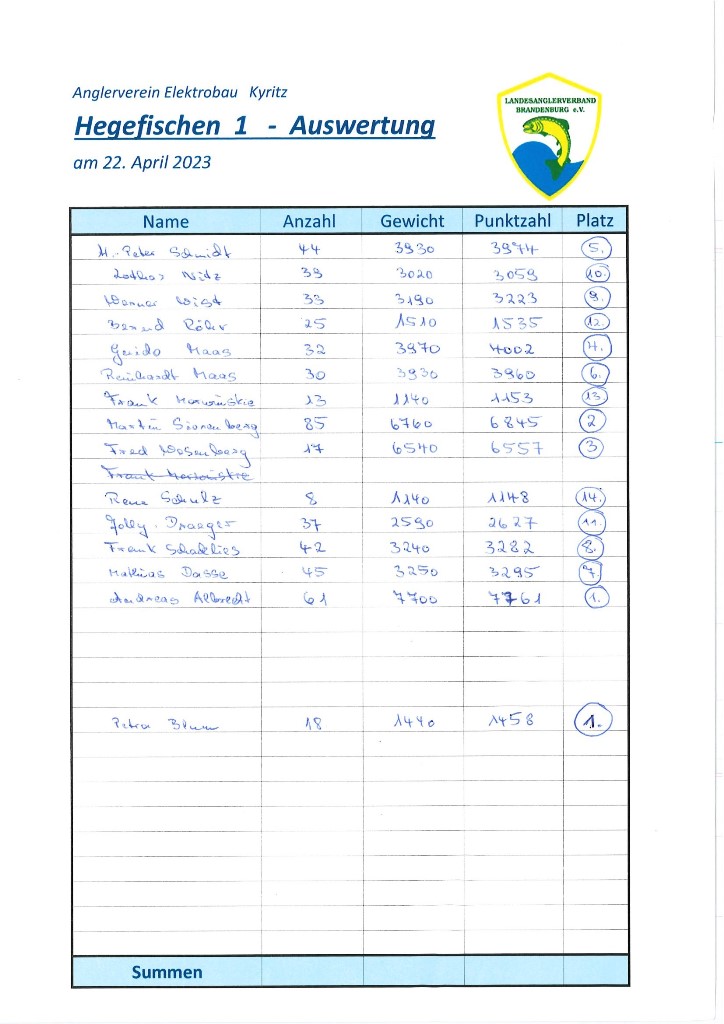 Anglerverein Elektrobau Kyritz
LANDESANGLERVERBAND
BRANDENBURG e.V.
Hegefischen 1 - Auswertung
am 22. April 2023
Name Anzahl Gewicht Punktzahl Platz
H.-Peter Schmidt 44 3930 3974 5.
Lothar Nitz 39 3020 3059 10.
Werner 33 3190 3223 9.
Bernd Röhr 25 1510 1535 12.
Guido Maas 32 3970 4002 4.
Reinhardt Maas 30 3930 3960 6.
Frank 13 1140 1153 13
Martin 85 6760 6845 2
Fred Wosenberg 17 6540 6557 3
Frank
Rene Schulz 8 1140 1148 14.
Jolly. Draeger 37 2590 2627 11.
Frank Schallies 42 3240 3282 8.
Mathias Dasse 45 3250 3295 7.
Andreas Albrecht 61 7700 7761 1.
Petra Blum 18 1440 1458 1.
Summen